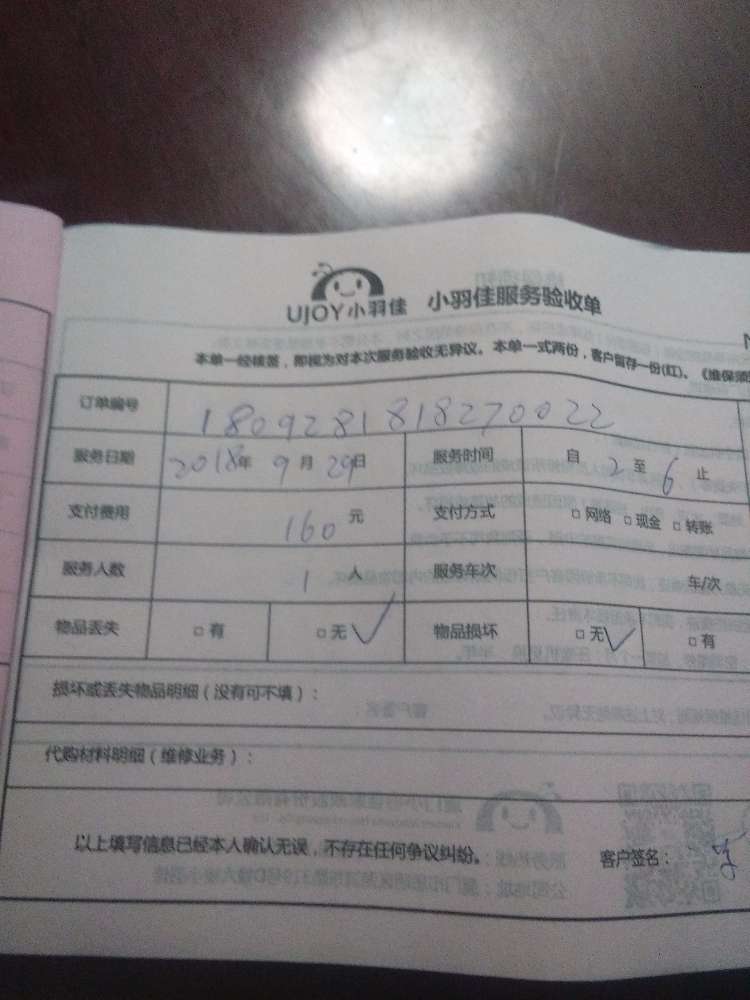 UJOY小羽佳 小羽佳服务验收单
本单一经核签，即视为对本次服务验收无异议。本单一式两份，客户留存一份(红)。《维保须
订单编号 1809281818270022
服务日期 2018年 9月 29日 服务时间 自 2 至 6 止
支付费用 160 元 支付方式 □ 网络 □ 现金 □ 转账
服务人数 1 人 服务车次 车/次
物品丢失 □ 有 □ 无 ✓ 物品损坏 □ 无 ✓ □ 有
损坏或丢失物品明细（没有可不填）：
代购材料明细（维修业务）：
以上填写信息已经本人确认无误，不存在任何争议纠纷。 客户签名：